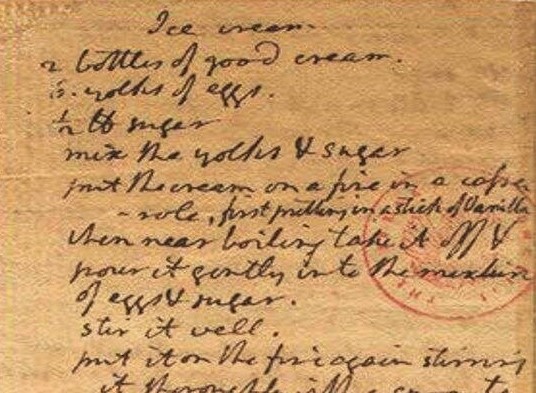 Ice cream.
2 bottles of good cream.
6. yolks of eggs.
½ ℔ sugar
mix the yolks & sugar
put the cream on a fire in a casse
- role, first putting in a stick of Vanilla.
when near boiling take it off &
pour it gently into the mixture
of eggs & sugar.
stir it well.
put it on the fire again stirring
it thoroughly with a spoon to